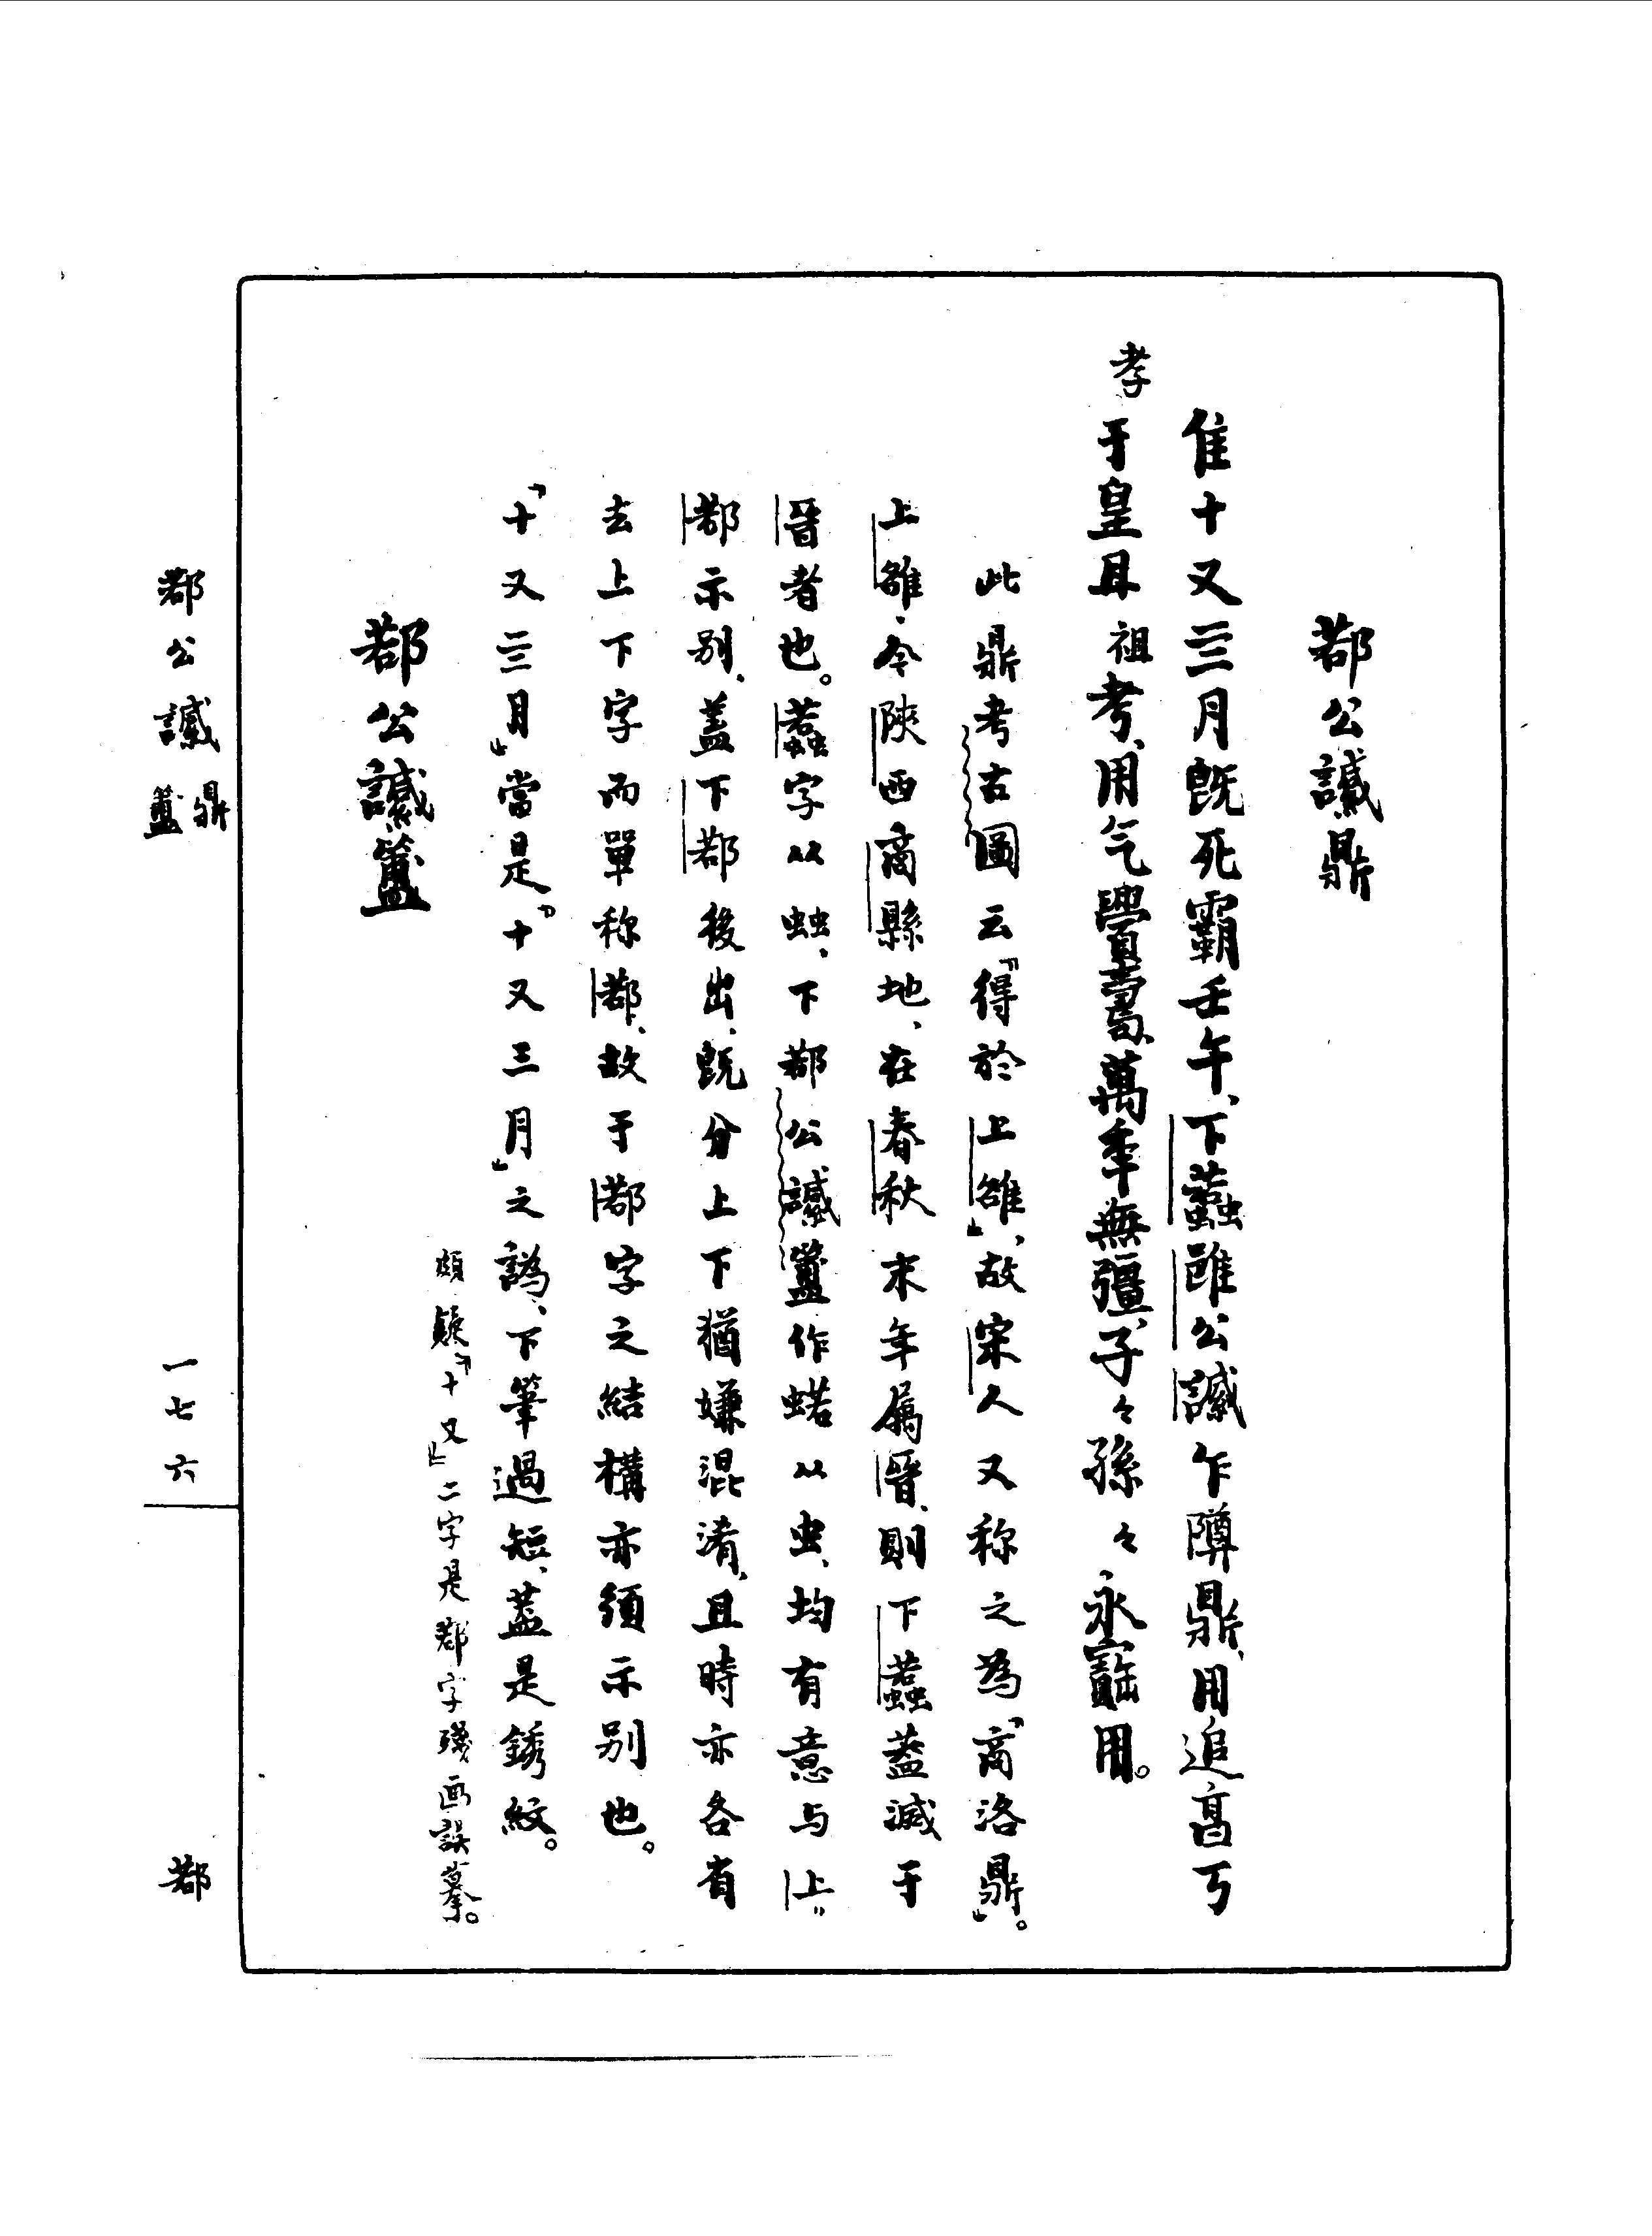 鄀公諴鼎
隹十又三月既死霸壬午、下蠚雝公諴乍䵼鼎、用追亯丂
孝于皇且祖考、用气釁壽、萬年無彊、子々孫々永寶用。
此鼎考古圖云「得於上雒」、故宋人又称之為「商洛鼎」。
上雒、今陝西商縣地、在春秋末年屬晉、則下蠚蓋滅于
晉者也。蠚字从䖵、下鄀公諴簠作蠚从虫、均有意与上〃
鄀示別、蓋下鄀後出、既分上下猶嫌混淆、且時亦各有
去上下字而單称鄀、故于鄀字之結構亦須示別也。
「十又三月」當是「十又三月」之譌、下筆過短、蓋是銹紋。
頗疑「十又」二字是鄀字殘画誤摹。
鄀公諴簠
鄀公諴鼎簠
一七六
鄀